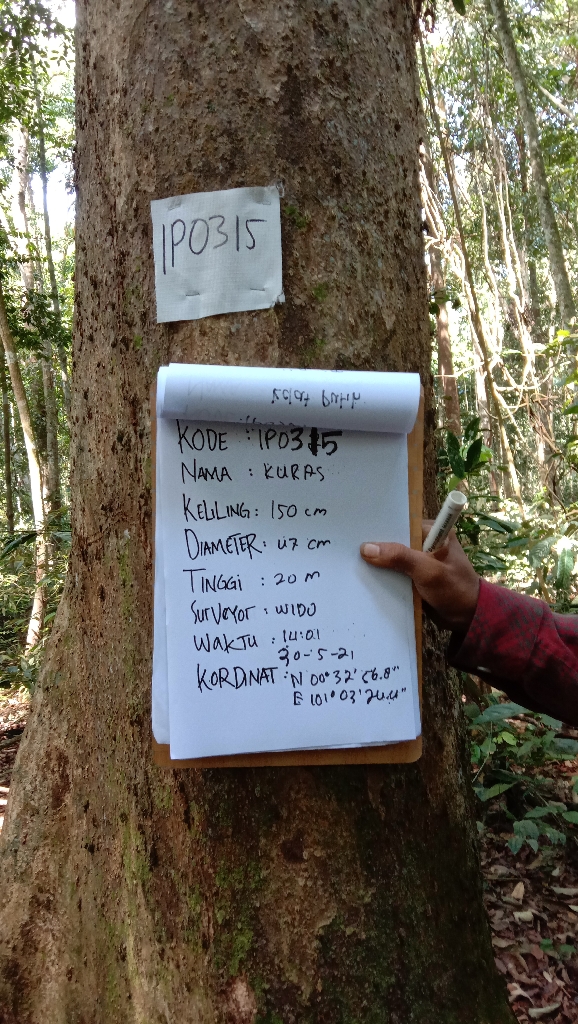 IPO315
Kalat Putih
KODE : IPO315
NAMA : KURAS
KELILING : 150 cm
DIAMETER : 47 cm
TINGGI : 20 m
SURVEYOR : WIDO
WAKTU : 14:01
30-5-21
KORDINAT : N 00° 32' 56.8"
E 101° 03' 24.4"